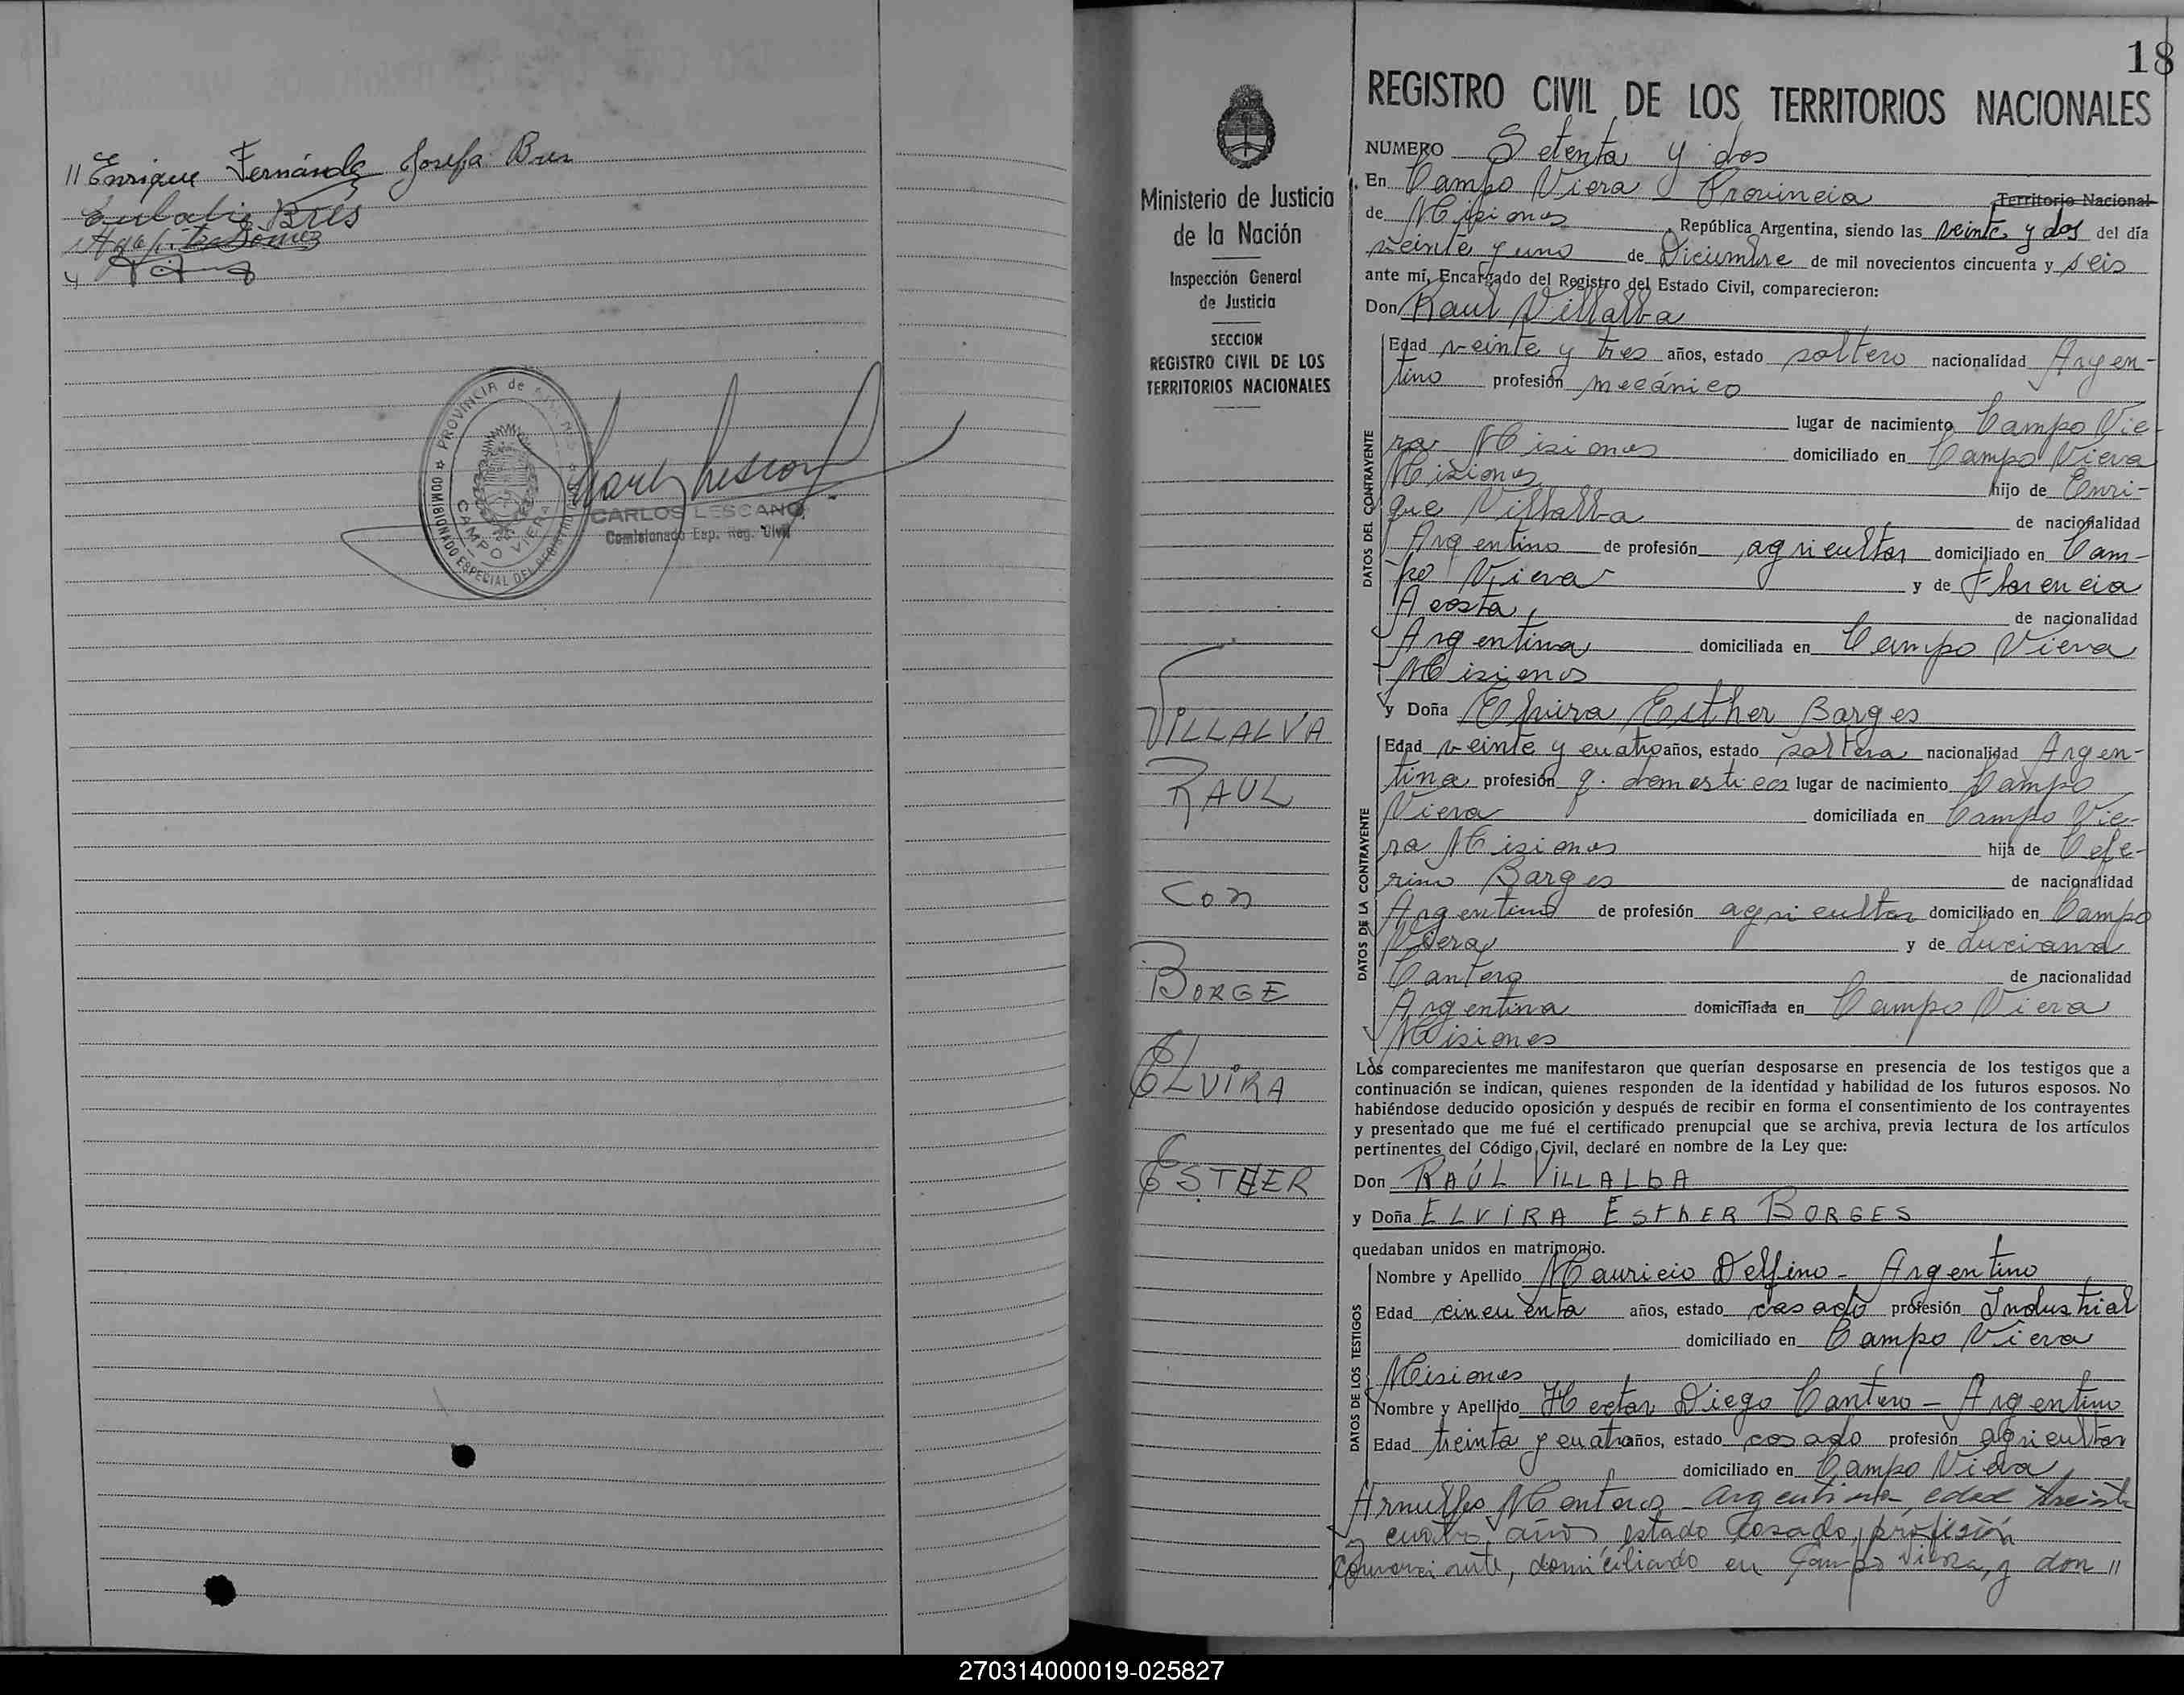 " Enrique Fernández Josefa Bres
Eulalia Brés
Agapito Gómez
PROVINCIA de MISIONES
COMISIONADO ESPECIAL DEL REGISTRO CIVIL
CAMPO VIERA
CARLOS LESCANO
Comisionado Esp. Reg. Civil
18
Ministerio de Justicia
de la Nación
Inspección General
de Justicia
SECCION
REGISTRO CIVIL DE LOS
TERRITORIOS NACIONALES
VILLALVA
RAUL
CON
BORGE
ELVIRA
ESTHER
REGISTRO CIVIL DE LOS TERRITORIOS NACIONALES
NUMERO Setenta y dos
En Campo Viera - Provincia Territorio Nacional
de Misiones, República Argentina, siendo las veinte y dos del día
veinte y uno de Diciembre de mil novecientos cincuenta y seis
ante mí, Encargado del Registro del Estado Civil, comparecieron:
Don Raul Villalba
DATOS DEL CONTRAYENTE
Edad veinte y tres años, estado soltero nacionalidad Argen-
tino profesión mecánico
lugar de nacimiento Campo Vie-
ra Misiones domiciliado en Campo Viera
Misiones hijo de Enri-
que Villalba de nacionalidad
Argentino de profesión agricultor domiciliado en Cam-
po Viera y de Florencia
Acosta de nacionalidad
Argentina domiciliada en Campo Viera
Misiones
y Doña Elvira Esther Borges
DATOS DE LA CONTRAYENTE
Edad veinte y cuatro años, estado soltera nacionalidad Argen-
tina profesión q. domesticos lugar de nacimiento Campo
Viera domiciliada en Campo Vie-
ra Misiones hija de Cefe-
rino Borges de nacionalidad
Argentino de profesión agricultor domiciliado en Campo
Viera y de Luciana
Cantero de nacionalidad
Argentina domiciliada en Campo Viera
Misiones
Los comparecientes me manifestaron que querían desposarse en presencia de los testigos que a
continuación se indican, quienes responden de la identidad y habilidad de los futuros esposos. No
habiéndose deducido oposición y después de recibir en forma el consentimiento de los contrayentes
y presentado que me fué el certificado prenupcial que se archiva, previa lectura de los artículos
pertinentes del Código Civil, declaré en nombre de la Ley que:
Don RAÚL VILLALBA
y Doña ELVIRA ESTHER BORGES
quedaban unidos en matrimonio.
DATOS DE LOS TESTIGOS
Nombre y Apellido Mauricio Delfino - Argentino
Edad cincuenta años, estado casado profesión Industrial
domiciliado en Campo Viera
Misiones
Nombre y Apellido Hector Diego Cantero - Argentino
Edad treinta y cuatro años, estado casado profesión agricultor
domiciliado en Campo Viera
Arnulfo Montero - Argentino, edad treinta
cuatro años, estado casado, profesión
comerciante, domiciliado en Campo Viera, y don "
270314000019-025827